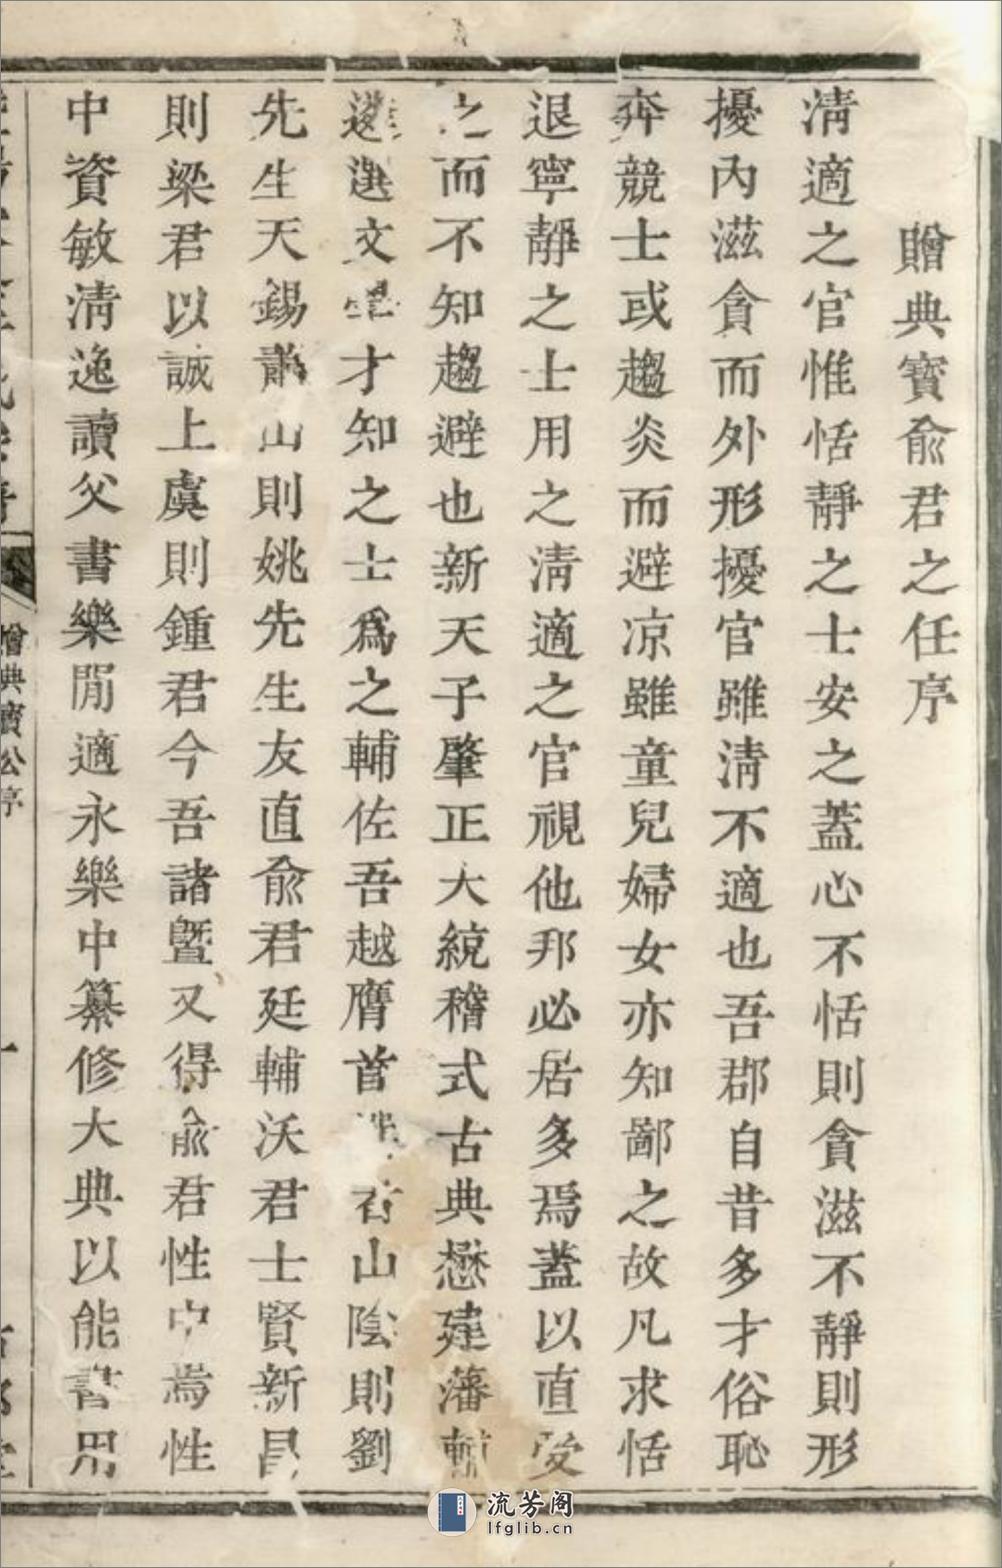 贈典寶俞君之任序
淸適之官惟恬靜之士安之蓋心不恬則貪滋不靜則形
擾內滋貪而外形擾官雖淸不適也吾郡自昔多才俗恥
奔競士或趨炎而避凉雖童兒婦女亦知鄙之故凡求恬
退寧靜之士用之淸適之官視他邦必居多焉蓋以直受
之而不知趨避也新天子肇正大統稽式古典懋建藩輔
遴選文學才知之士爲之輔佐吾越膺首者山陰則劉
先生天錫蕭山則姚先生友直俞君廷輔沃君士賢新昌
則梁君以誠上虞則鍾君今吾諸暨又得俞君性中焉性
中資敏淸逸讀父書樂閒適永樂中纂修大典以能書用
贈典寶公序
一
流芳阁
lfglib.cn